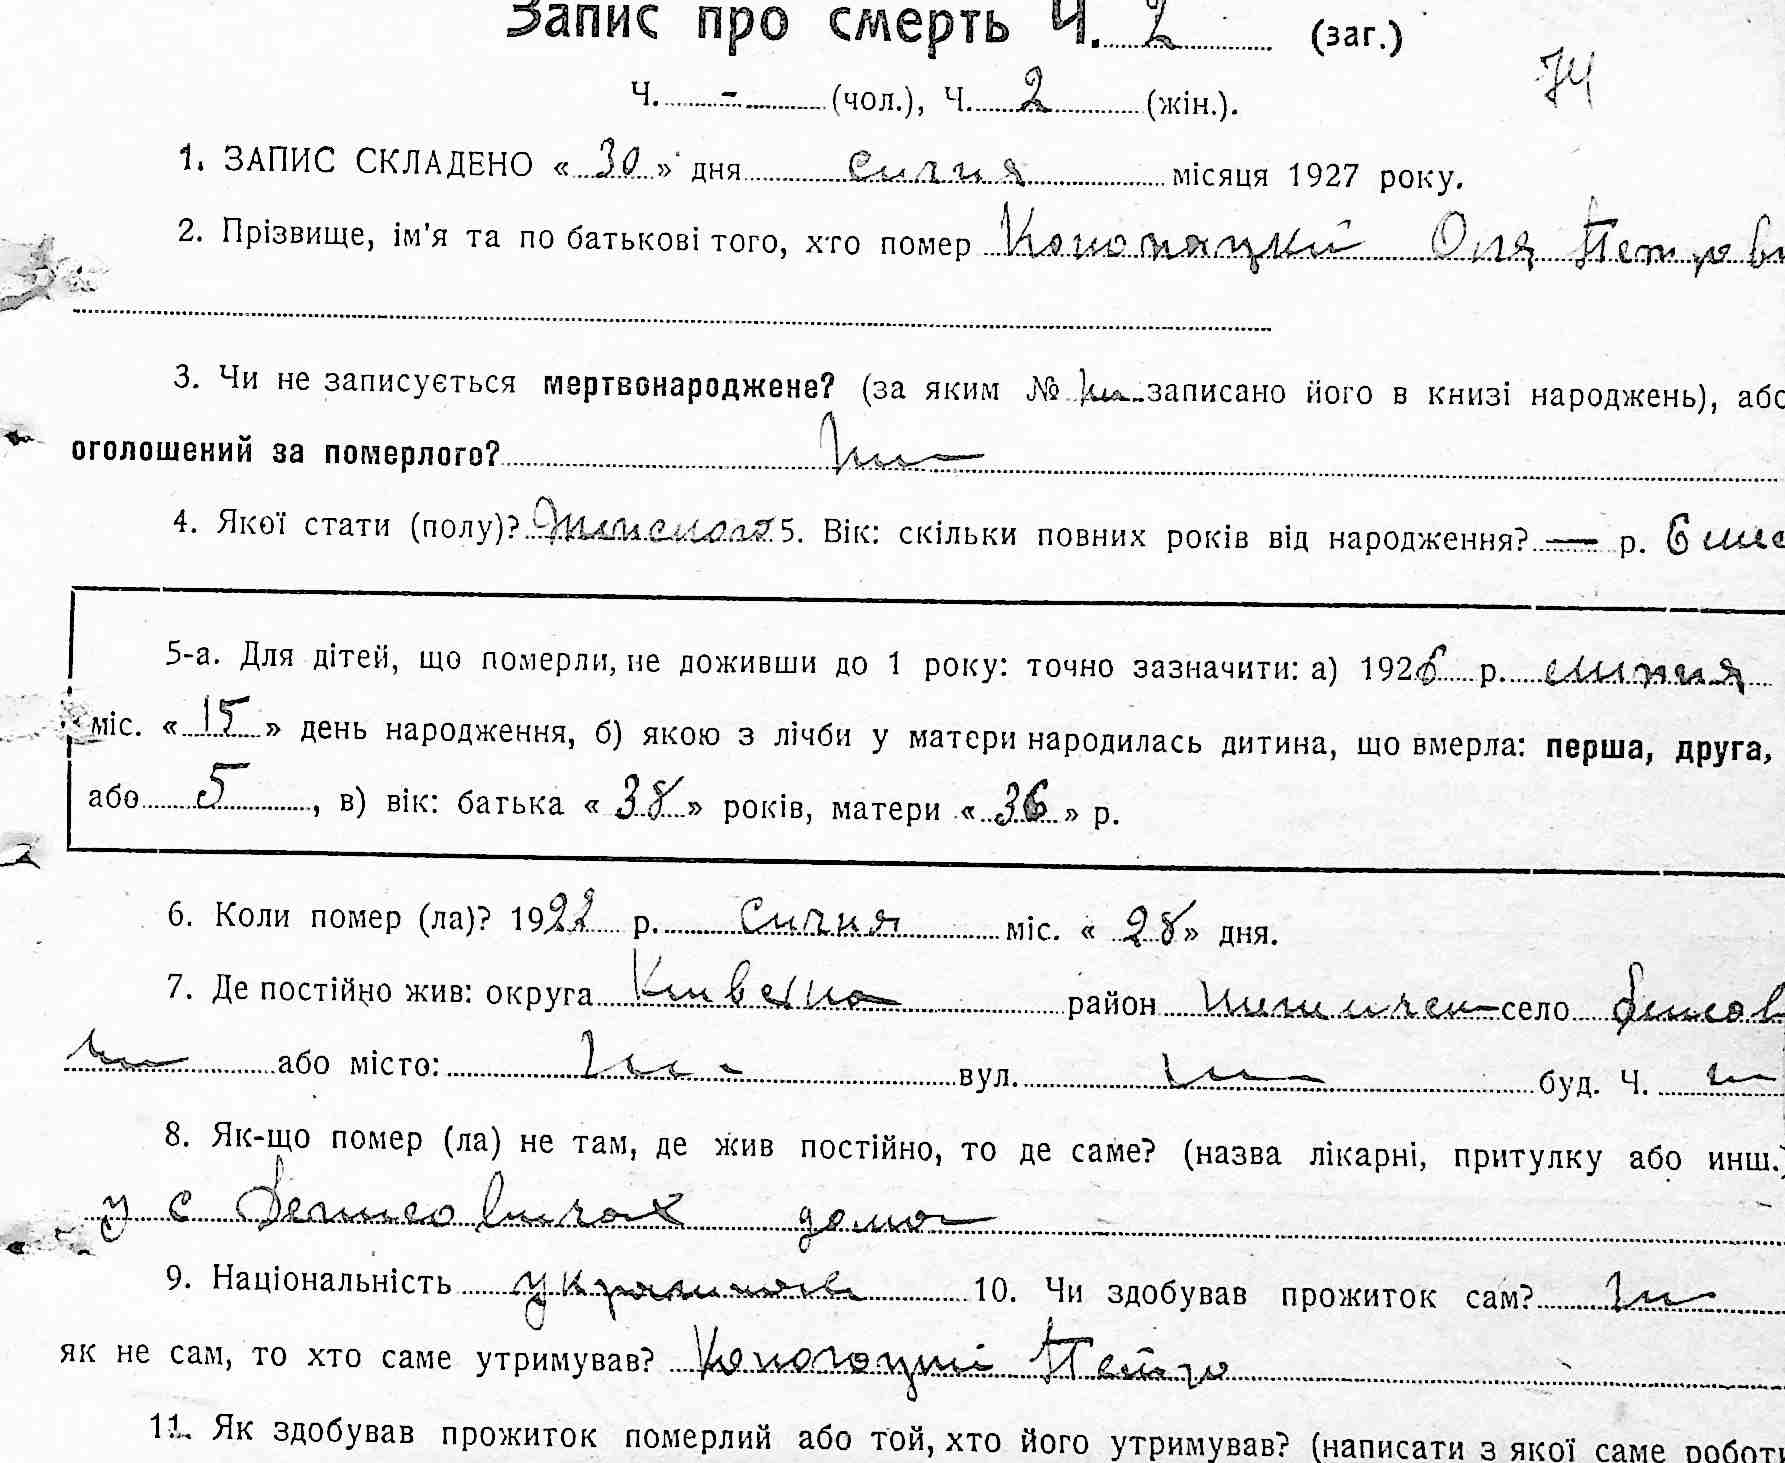 Запис про смерть Ч. 2 (заг.)
74
Ч. - (чол.), Ч. 2 (жін.).
1. ЗАПИС СКЛАДЕНО « 30 » дня сичня місяця 1927 року.
2. Прізвище, ім'я та по батькові того, хто помер Конопацкий Оля Петров
3. Чи не записується мертвонароджене? (за яким № ни записано його в книзі народжень), або
оголошений за померлого? ни
4. Якої стати (полу)? Женского 5. Вік: скільки повних років від народження? — р. 6 мис
5-а. Для дітей, що померли, не доживши до 1 року: точно зазначити: а) 1926 р. липня
міс. « 15 » день народження, б) якою з лічби у матери народилась дитина, що вмерла: перша, друга,
або 5, в) вік: батька « 38 » років, матери « 36 » р.
6. Коли помер (ла)? 1922 р. сичня міс. « 28 » дня.
7. Де постійно жив: округа район село
ни або місто: ни вул. ни буд. Ч. ни
8. Як-що помер (ла) не там, де жив постійно, то де саме? (назва лікарні, притулку або инш.)
у с дома
9. Національність 10. Чи здобував прожиток сам? ни
як не сам, то хто саме утримував? Конопацкий Петро
11. Як здобував прожиток померлий або той, хто його утримував? (написати з якої саме роботи